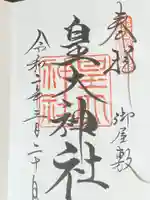 奉拝
御屋敷
皇大神社
令和二年三月二十日